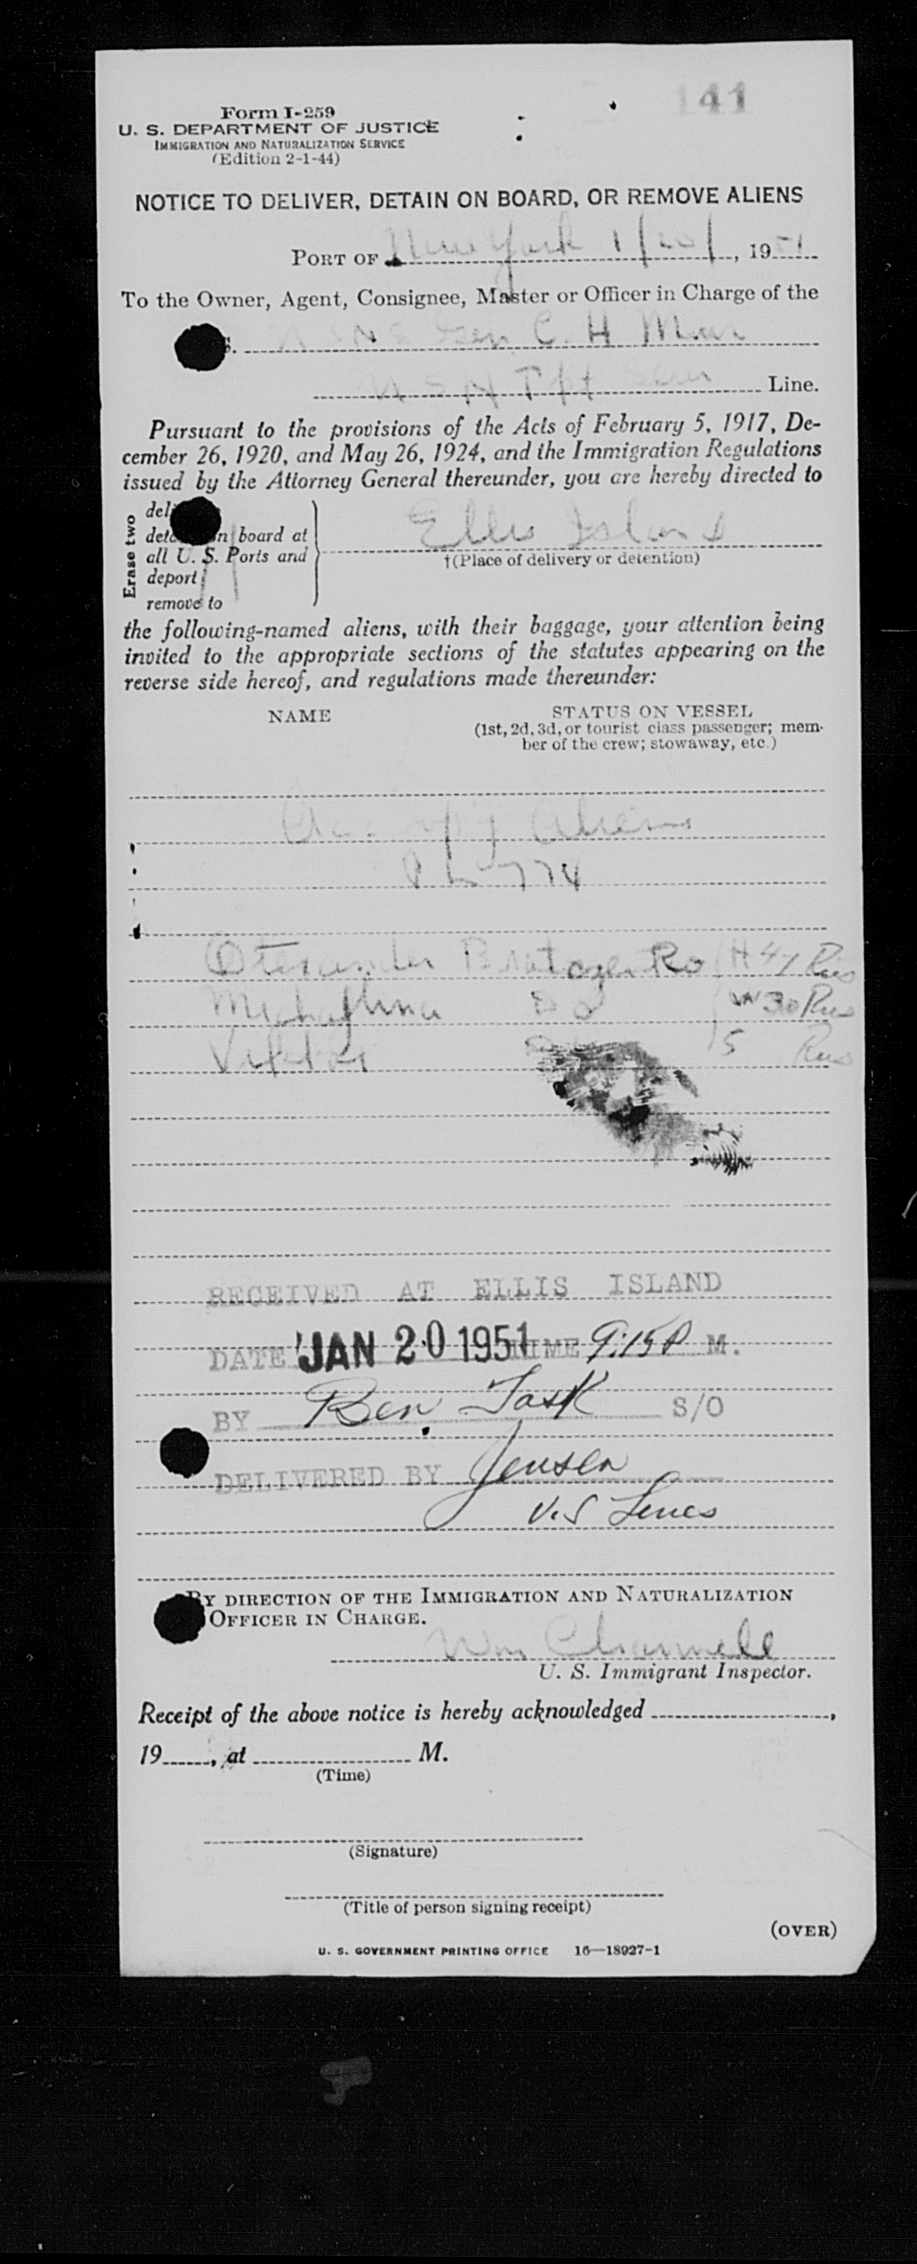 141
Form I-259
U. S. DEPARTMENT OF JUSTICE
IMMIGRATION AND NATURALIZATION SERVICE
(Edition 2-1-44)
NOTICE TO DELIVER, DETAIN ON BOARD, OR REMOVE ALIENS
PORT OF New York 1/20/, 1951
To the Owner, Agent, Consignee, Master or Officer in Charge of the
S. USNS Gen C. H Muir
Line.
Pursuant to the provisions of the Acts of February 5, 1917, De-
cember 26, 1920, and May 26, 1924, and the Immigration Regulations
issued by the Attorney General thereunder, you are hereby directed to
Erase two
on board at
all U. S. Ports and
deport
remove to
Ellis Island
†(Place of delivery or detention)
the following-named aliens, with their baggage, your attention being
invited to the appropriate sections of the statutes appearing on the
reverse side hereof, and regulations made thereunder:
NAME STATUS ON VESSEL
(1st, 2d, 3d, or tourist class passenger; mem-
ber of the crew; stowaway, etc.)
Aliens
P L 774
H 47 Rus
Do W 30 Rus
5 Rus
RECEIVED AT ELLIS ISLAND
DATE JAN 20 1951 TIME 9:15 P M.
BY Ben Task S/O
DELIVERED BY Jensen
U.S Lines
BY DIRECTION OF THE IMMIGRATION AND NATURALIZATION
OFFICER IN CHARGE.
Wm
U. S. Immigrant Inspector.
Receipt of the above notice is hereby acknowledged ,
19 , at M.
(Time)
(Signature)
(Title of person signing receipt)
(OVER)
U. S. GOVERNMENT PRINTING OFFICE 16—18927-1